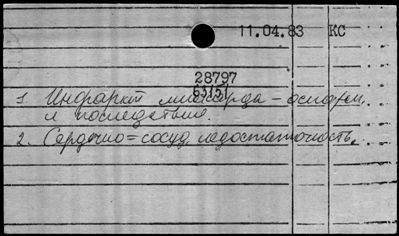 11.04.83 КС
28797
63151
1. Инфаркт миокарда –
и последствие.
2. Сердечно=сосуд. недостаточность.